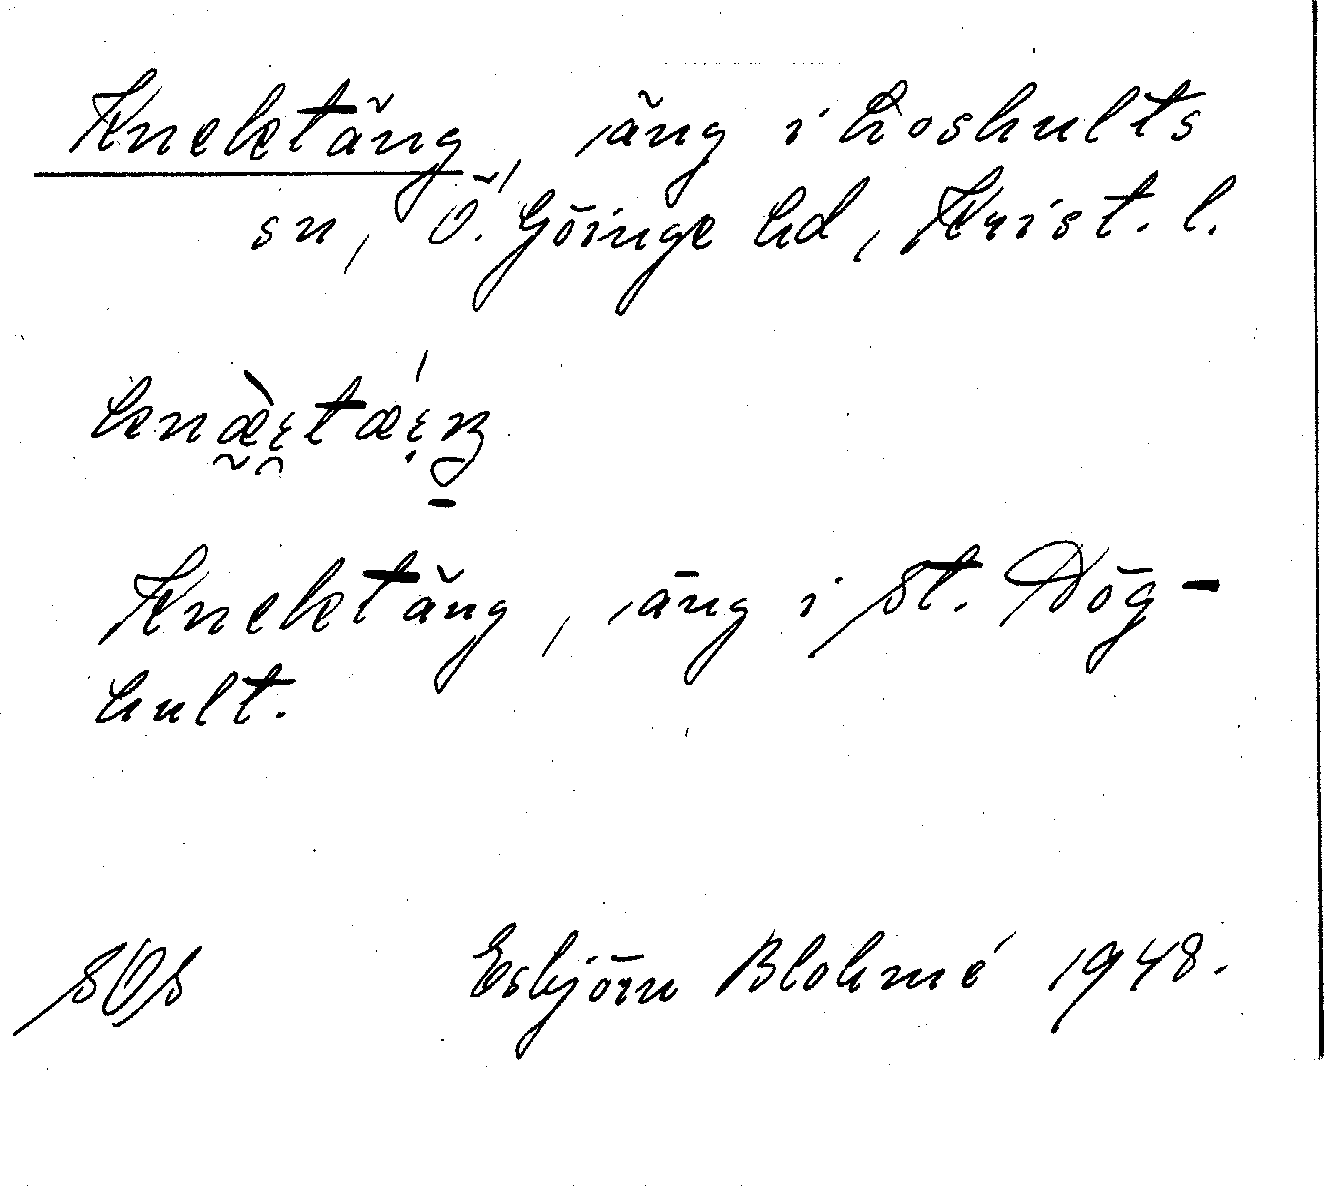 Knektäng, äng i Loshults
sn, Ö. Göinge hd, Krist. l.
Knektäng, äng i St. Dög-
hult.
SOS Esbjörn Blohmé 1948.